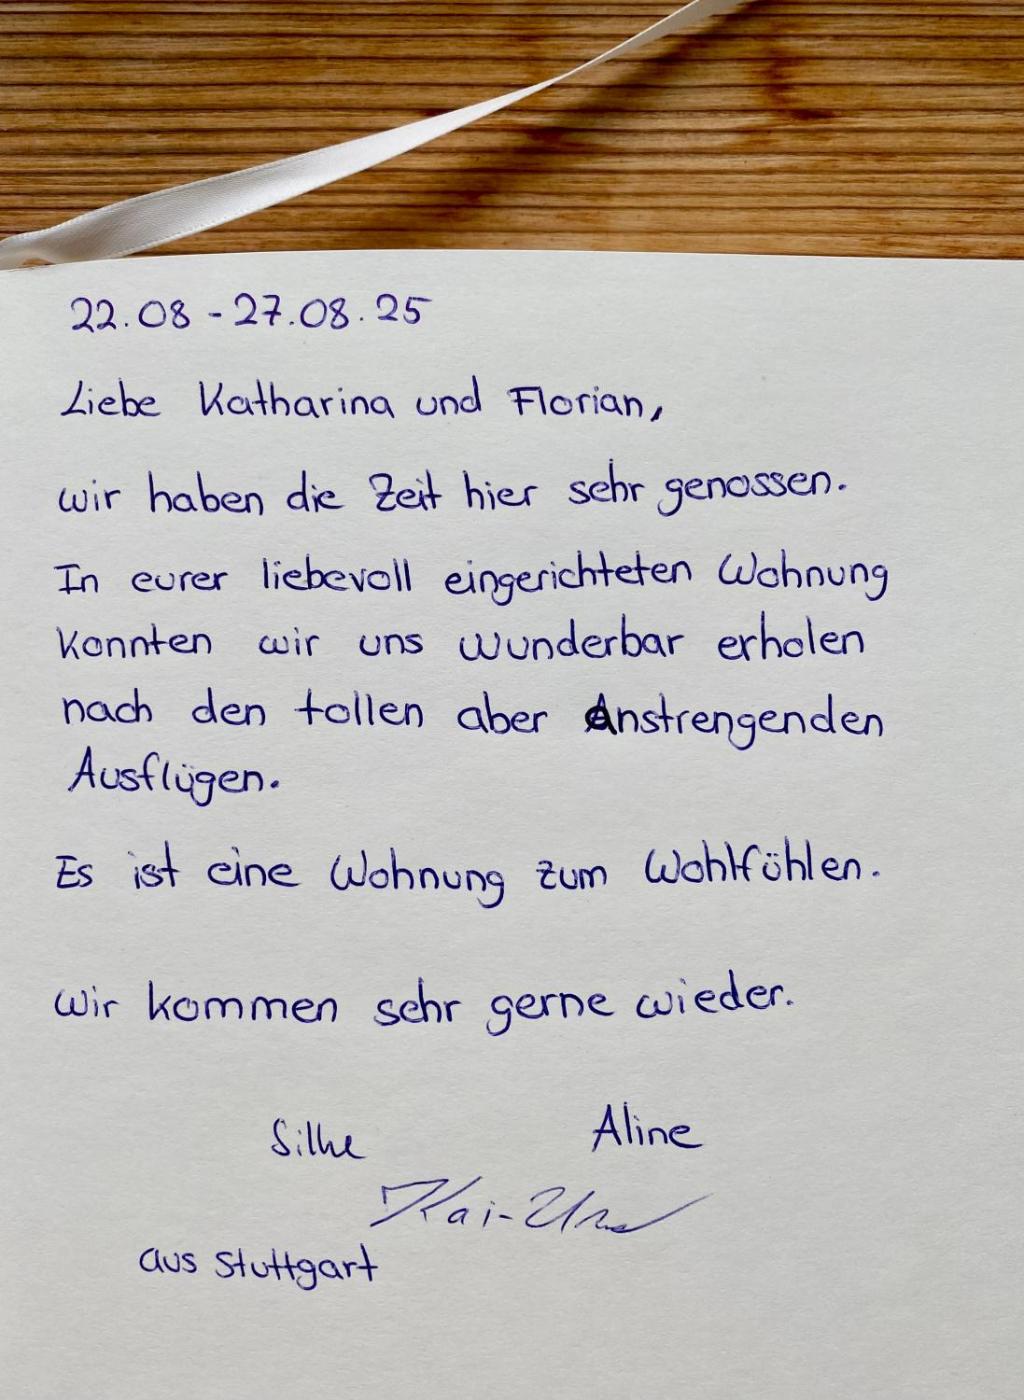 22.08 - 27.08.25
Liebe Katharina und Florian,
wir haben die Zeit hier sehr genossen.
In eurer liebevoll eingerichteten Wohnung
konnten wir uns wunderbar erholen
nach den tollen aber Anstrengenden
Ausflügen.
Es ist eine Wohnung zum Wohlfühlen.
Wir kommen sehr gerne wieder.
Silke Aline
Kai-Uwe
aus Stuttgart